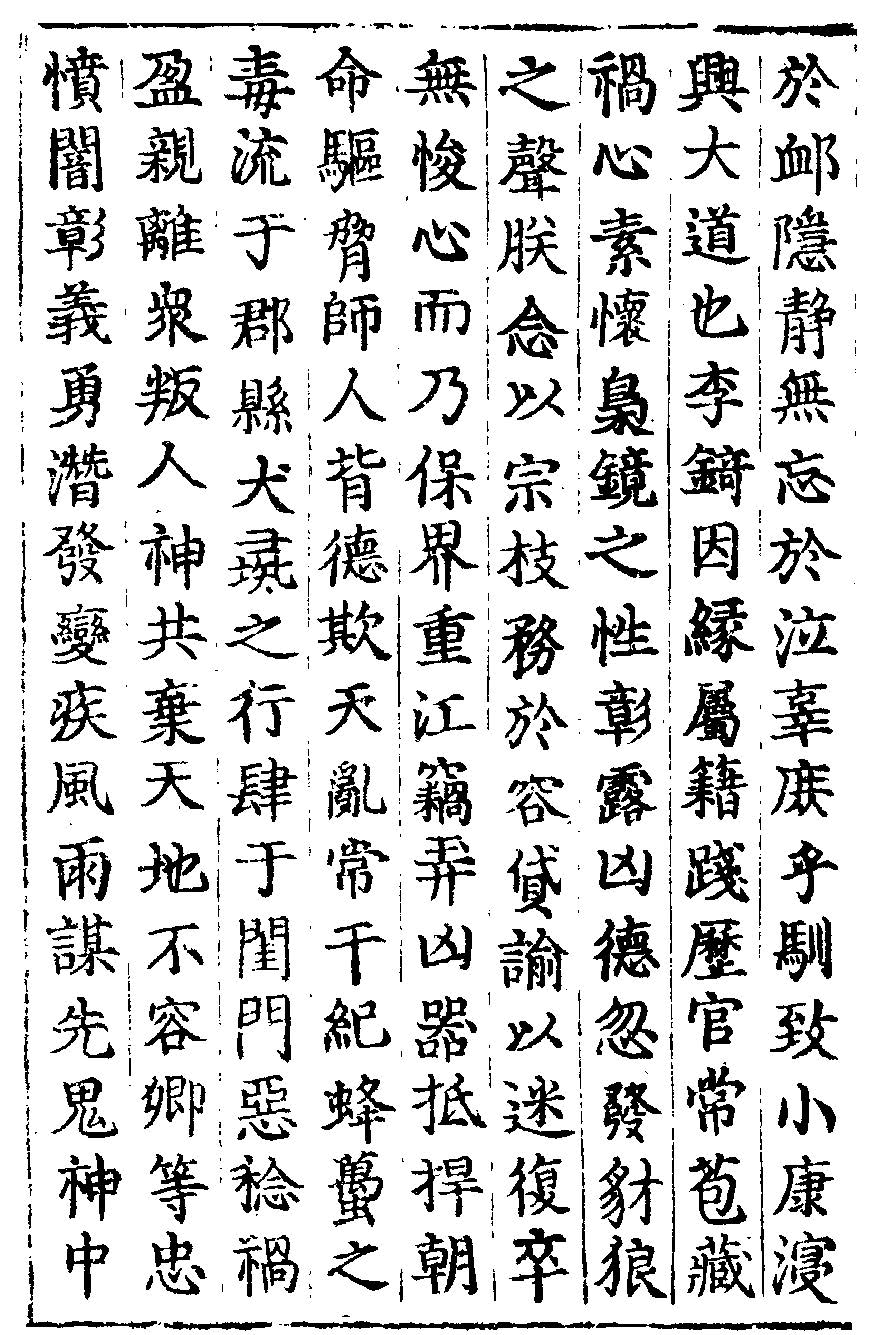 於䘏隱静無忘於泣辜庻乎馴致小康寖
興大道也李錡因縁屬籍踐歷官常苞藏
禍心素懷梟鏡之性彰露凶德忽發豺狼
之聲朕念以宗枝務於容貸諭以迷復卒
無悛心而乃保界重江竊弄凶器抵捍朝
命驅脅師人背德欺天亂常干紀蜂蠆之
毒流于郡縣犬彘之行肆于閨門惡稔禍
盈親離衆叛人神共棄天地不容卿等忠
憤闇彰義勇潛發變疾風雨謀先鬼神中